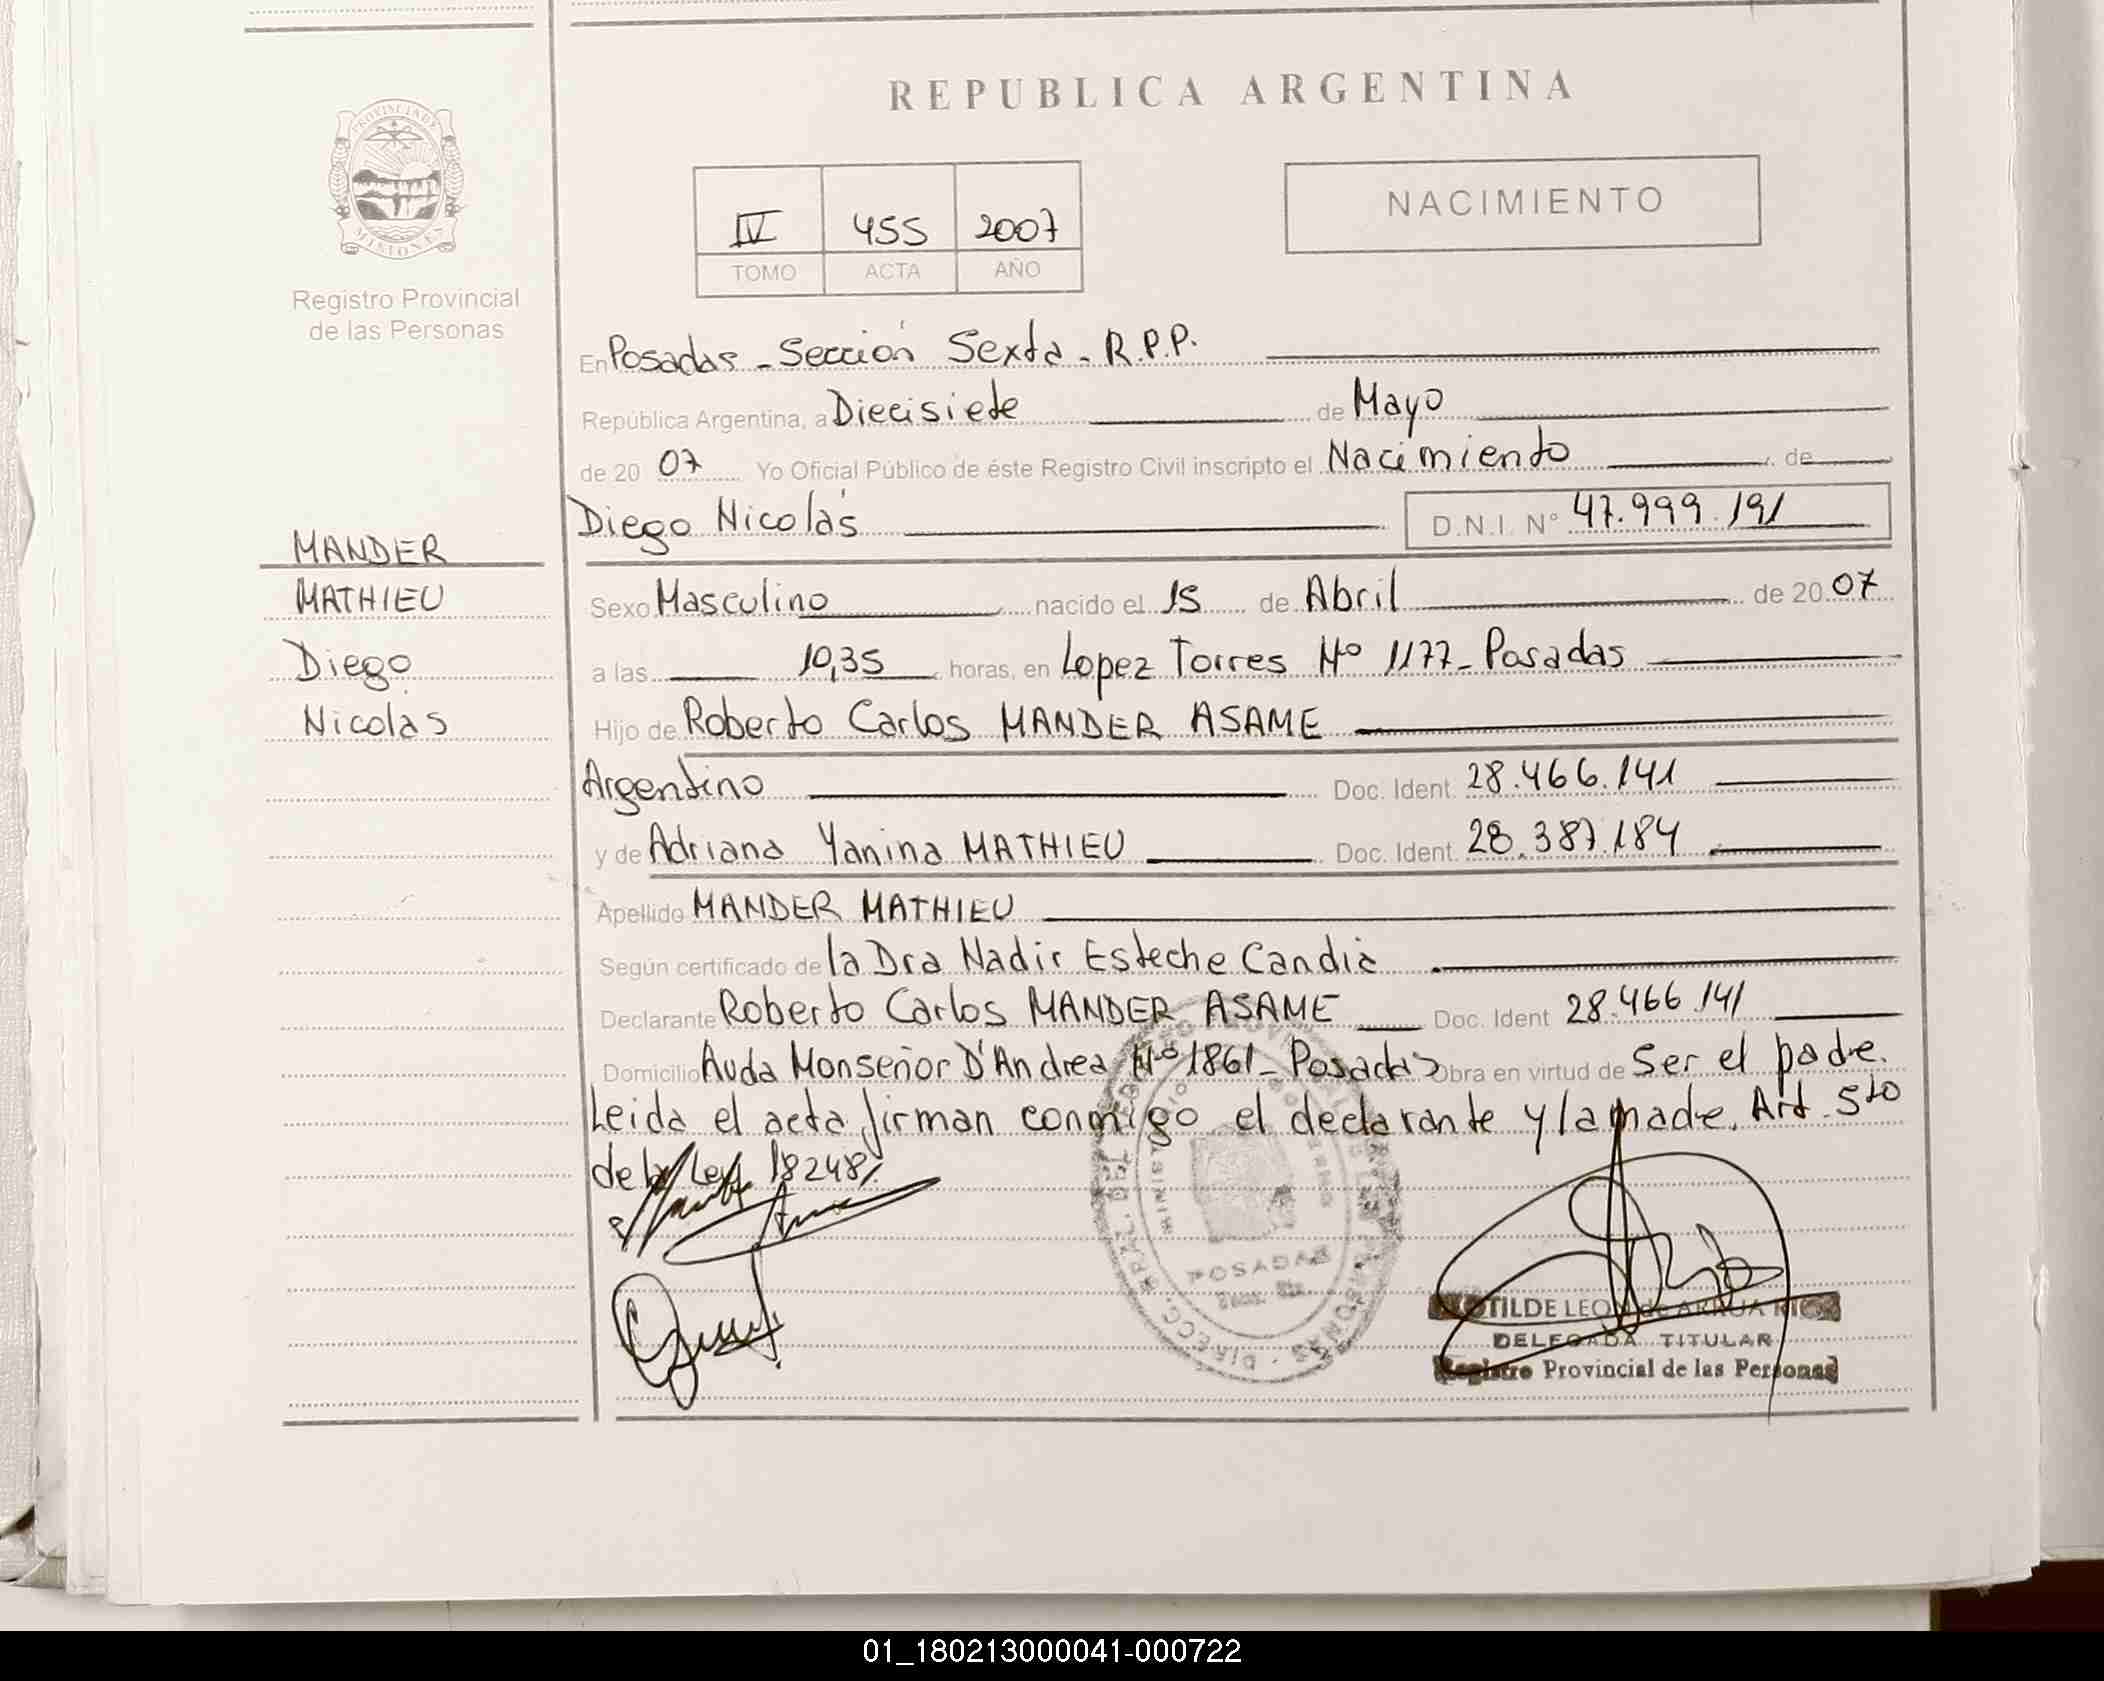 REPUBLICA ARGENTINA
PROVINCIA DE
MISIONES
Registro Provincial
de las Personas
IV 455 2007
TOMO ACTA AÑO
NACIMIENTO
En Posadas - Sección Sexta - R.P.P.
República Argentina, a Diecisiete de Mayo
de 20 07 Yo Oficial Público de éste Registro Civil inscripto el Nacimiento de
Diego Nicolás D.N.I. Nº 47.999.191
MANDER
MATHIEU
Diego
Nicolás
Sexo Masculino nacido el 15 de Abril de 20 07
a las 10,35 horas, en Lopez Torres Nº 1177 - Posadas
Hijo de Roberto Carlos MANDER ASAME
Argentino Doc. Ident. 28.466.141
y de Adriana Yanina MATHIEU Doc. Ident. 28.387.184
Apellido MANDER MATHIEU
Según certificado de la Dra Nadir Esteche Candia
Declarante Roberto Carlos MANDER ASAME Doc. Ident 28.466.141
Domicilio Avda Monseñor D'Andrea Nº 1861 - Posadas Obra en virtud de Ser el padre.
Leida el acta firman conmigo el declarante y la madre. Art. 5to
de la Ley 18248/.
POSADAS
TILDE LEON de ARRUA RIOS
DELEGADA TITULAR
Registro Provincial de las Personas
01_180213000041-000722